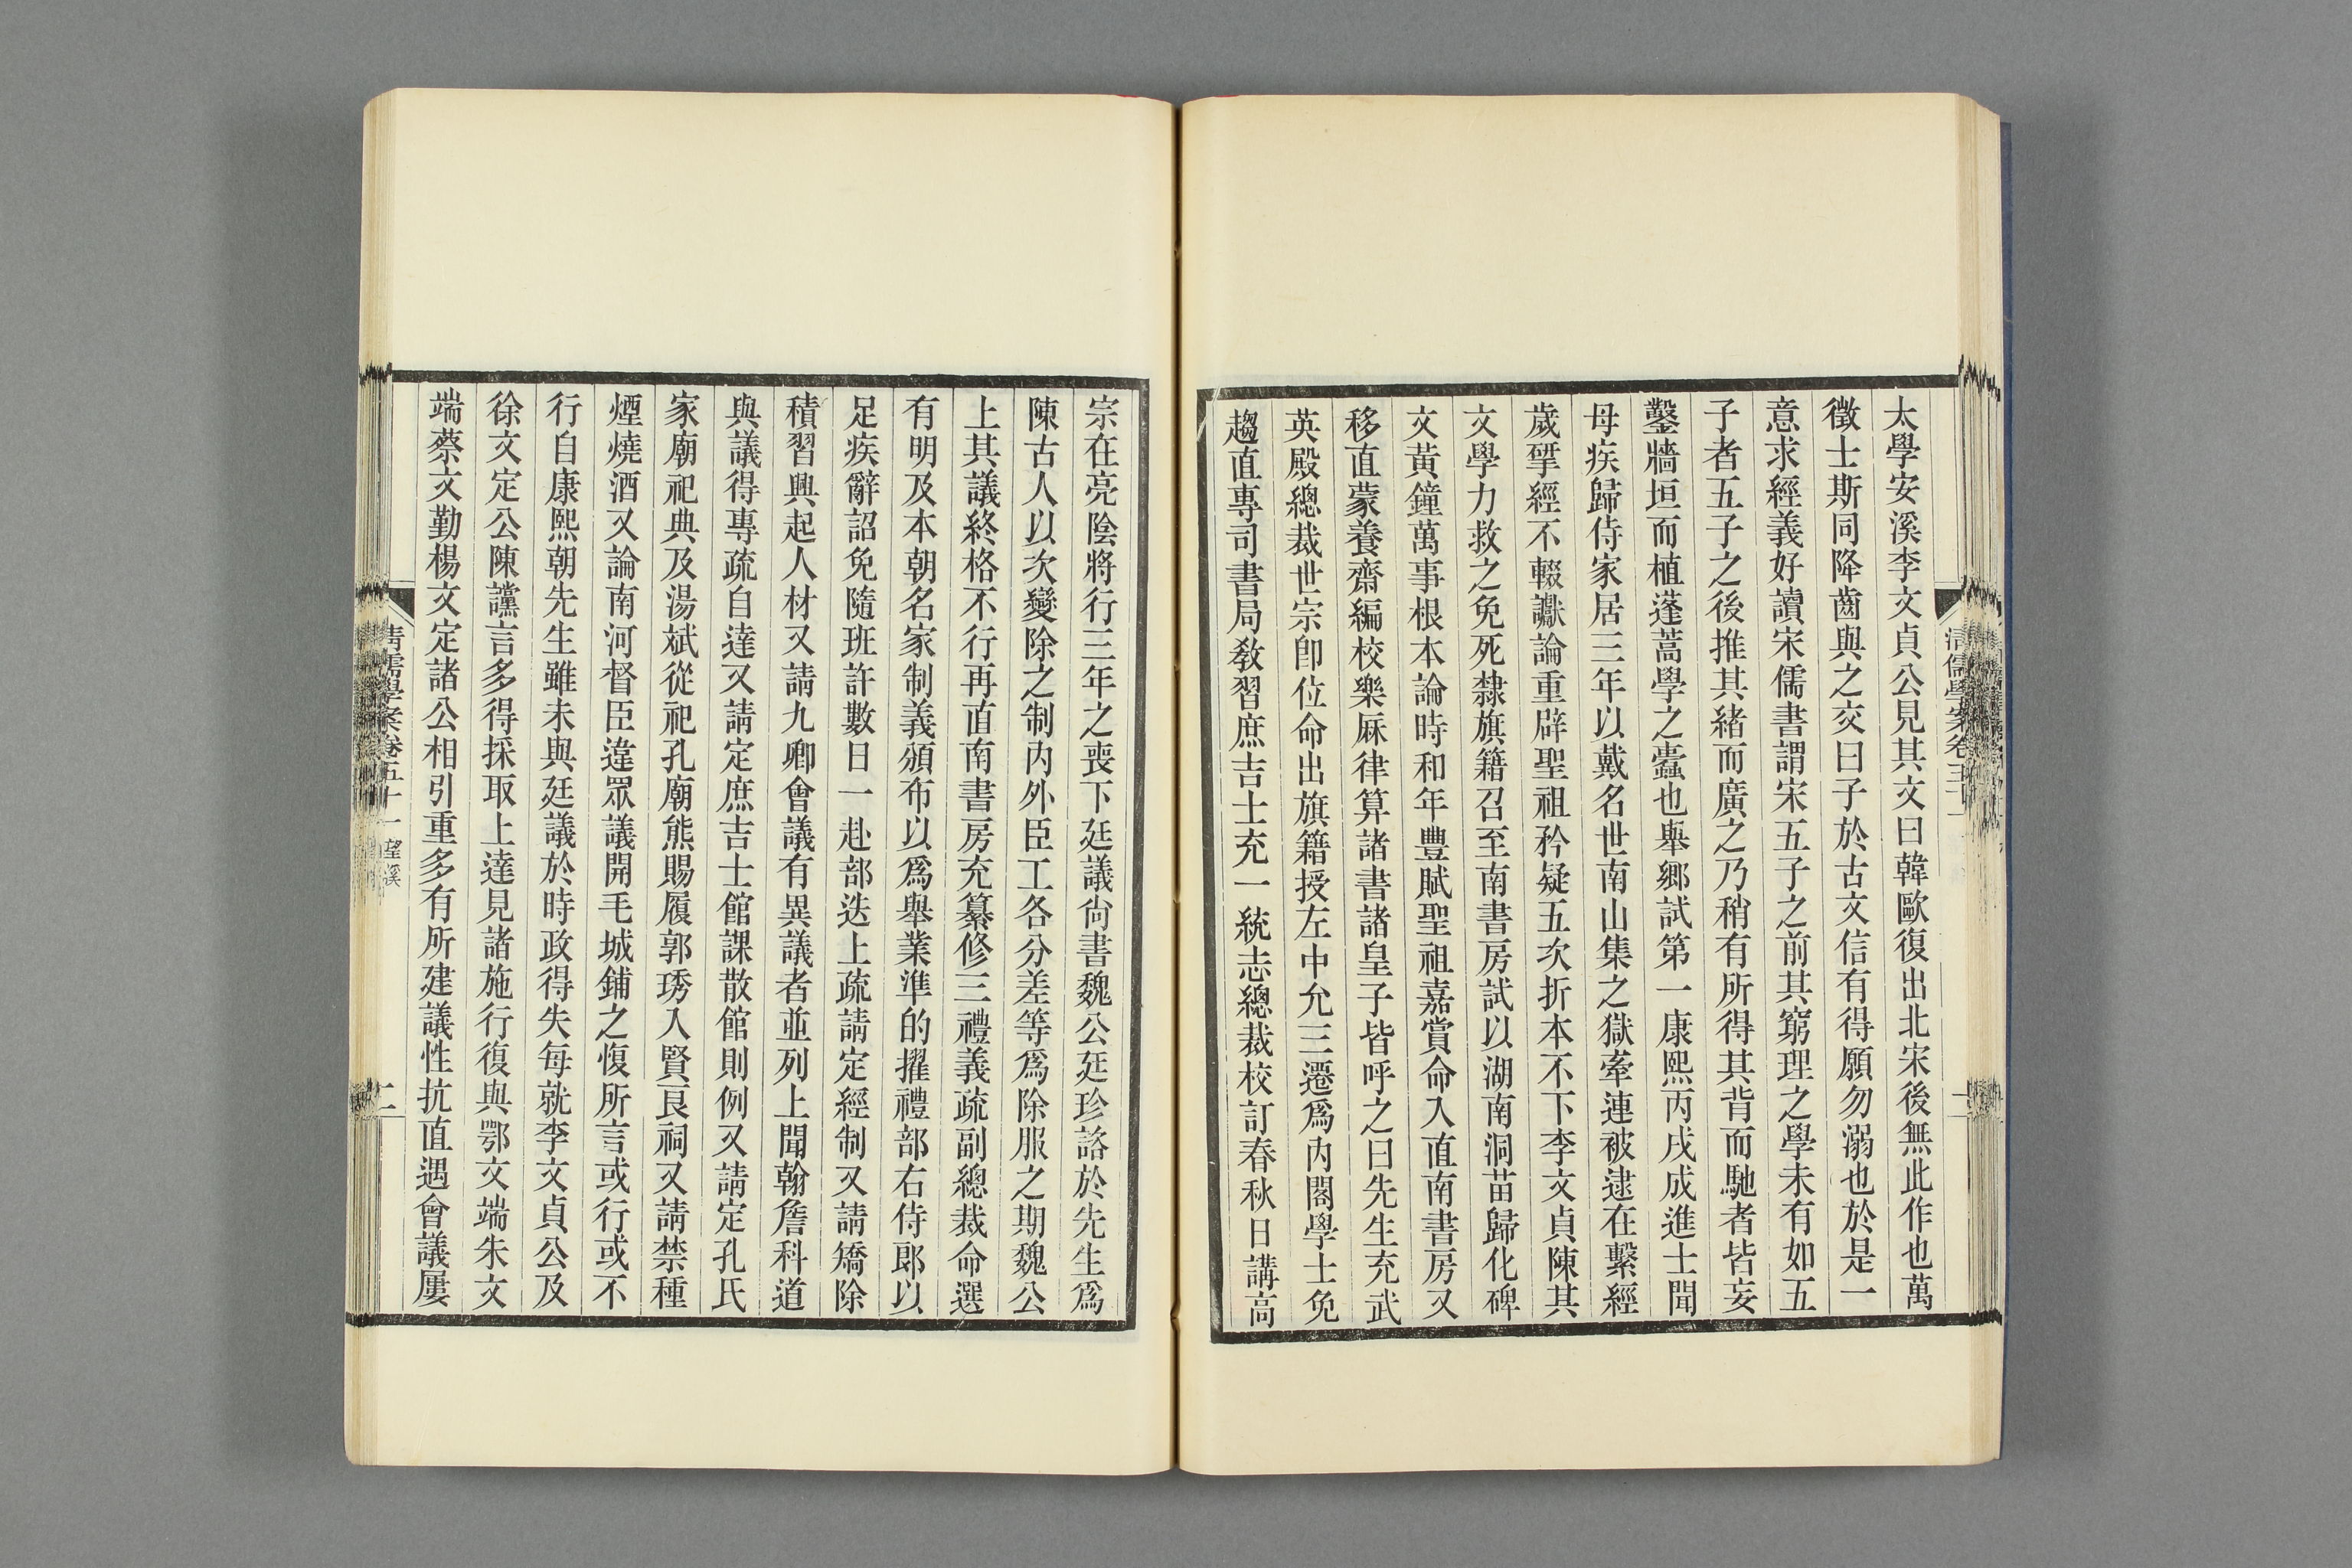 太學安溪李文貞公見其文曰韓歐復出北宋後無此作也萬
徵士斯同降齒與之交曰子於古文信有得願勿溺也於是一
意求經義好讀宋儒書謂宋五子之前其窮理之學未有如五
子者五子之後推其緒而廣之乃稍有所得其背而馳者皆妄
鑿牆垣而植蓬蒿學之蠹也舉鄉試第一康熙丙戌成進士聞
母疾歸侍家居三年以戴名世南山集之獄牽連被逮在繫經
歲揅經不輟讞論重辟聖祖矜疑五次折本不下李文貞陳其
文學力救之免死隸旗籍召至南書房試以湖南洞苗歸化碑
文黃鐘萬事根本論時和年豐賦聖祖嘉賞命入直南書房又
移直蒙養齋編校樂厤律算諸書諸皇子皆呼之曰先生充武
英殿總裁世宗卽位命出旗籍授左中允三遷爲內閣學士免
趨直專司書局敎習庶吉士充一統志總裁校訂春秋日講高
宗在亮陰將行三年之喪下廷議尙書魏公廷珍諮於先生爲
陳古人以次變除之制內外臣工各分差等爲除服之期魏公
上其議終格不行再直南書房充纂修三禮義疏副總裁命選
有明及本朝名家制義頒布以爲舉業準的擢禮部右侍郞以
足疾辭詔免隨班許數日一赴部迭上疏請定經制又請矯除
積習興起人材又請九卿會議有異議者並列上聞翰詹科道
與議得專疏自達又請定庶吉士館課散館則例又請定孔氏
家廟祀典及湯斌從祀孔廟熊賜履郭琇入賢良祠又請禁種
煙燒酒又論南河督臣違眾議開毛城鋪之愎所言或行或不
行自康熙朝先生雖未與廷議於時政得失每就李文貞公及
徐文定公陳讜言多得採取上達見諸施行復與鄂文端朱文
端蔡文勤楊文定諸公相引重多有所建議性抗直遇會議屢
清儒學案卷五十一 望溪
二